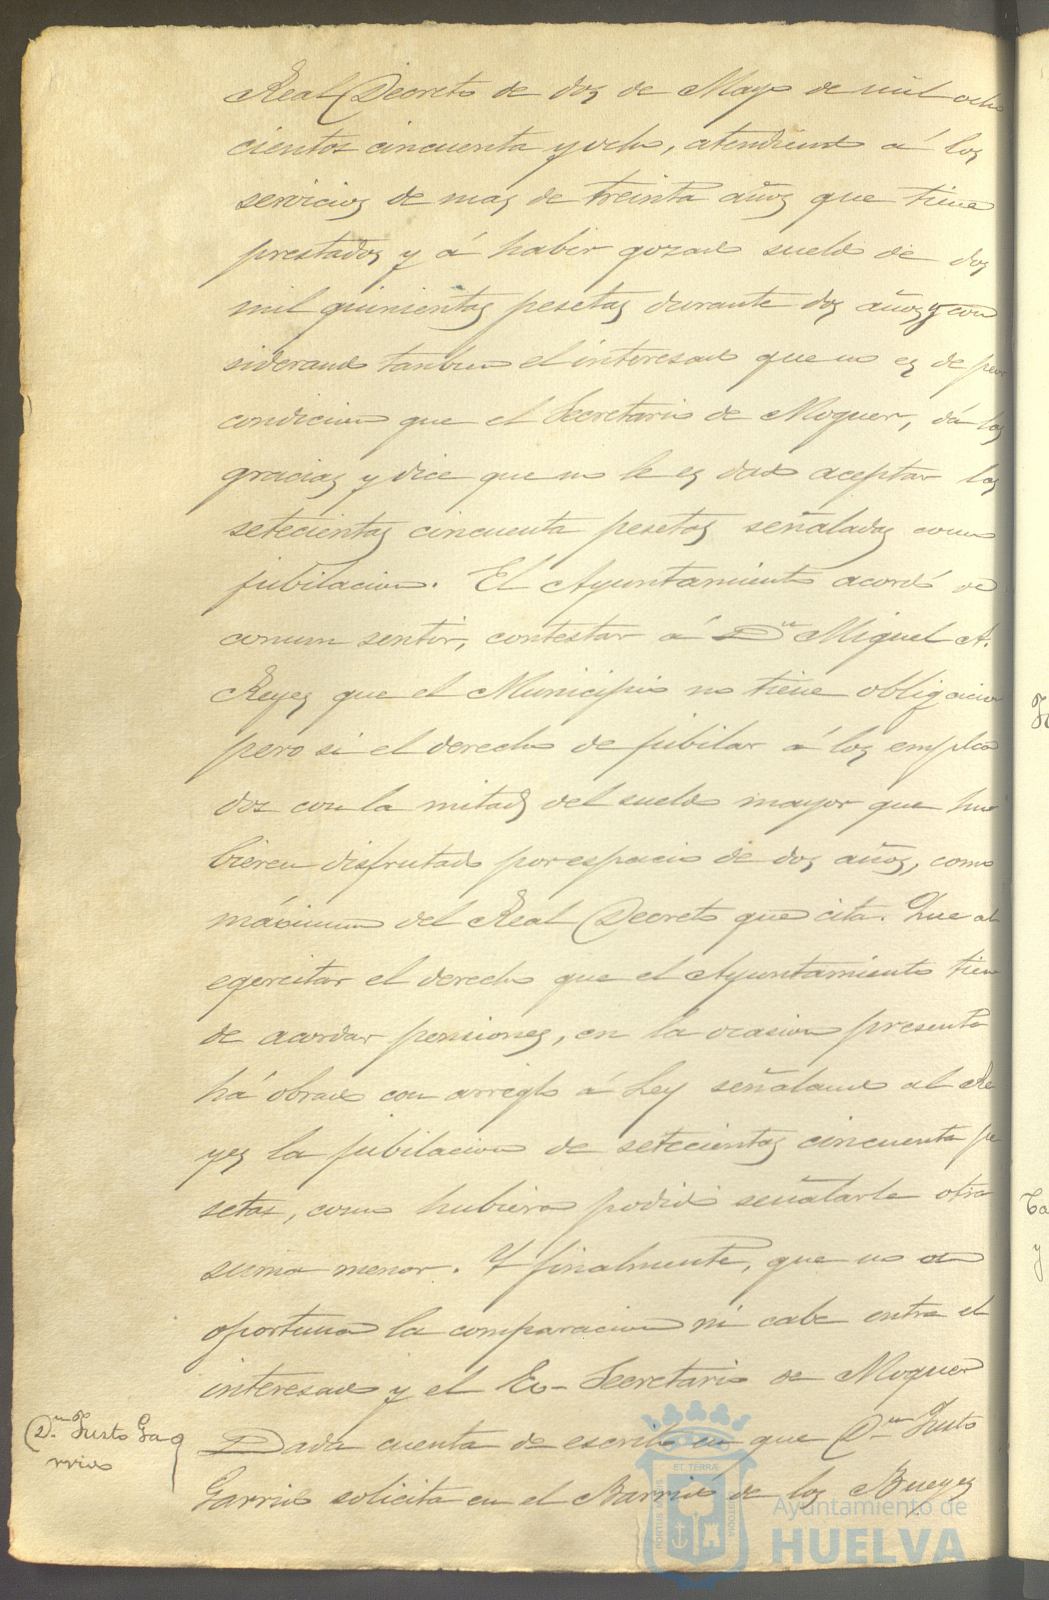 Real Decreto de dos de Mayo de mil ocho
cientos cincuenta y ocho, atendiend á los
servicios de mas de treinta años que tiene
prestados y á haber gozado sueldo de dos
mil quinientas pesetas durante dos años y con
siderando tambien el interesado que no es de peor
condicion que el Secretario de Moguer, dá las
gracias y dice que no le es dado aceptar las
setecientas cincuenta pesetas señaladas como
jubilacion. El Ayuntamiento acordó de
comun sentir, contestar á Dn Miguel A.
Reyes que el Municipio no tiene obligacion
pero si el derecho de jubilar á los emplea
dos con la mitad del sueldo mayor que hu
bieren disfrutado por espacio de dos años, como
máximun del Real Decreto que cita. Que al
egercitar el derecho que el Ayuntamiento tiene
de acordar pensiones, en la ocasion presente
há obrado con arreglo á Ley señalando al Re
yes la jubilacion de setecientas cincuenta pe
setas, como hubiera podido señalarle otra
suma menor. Y finalmente, que no es
oportuna la comparacion ni cabe entre el
interesado y el Ex-Secretario de Moguer
Dn Justo Ga
rrido
Dada cuenta de escrito en que Dn Justo
Garrido solicita en el Barrio de los Bueyes
PORTUS MARIS
ET TERRÆ
CUSTODIA
Ayuntamiento de
HUELVA